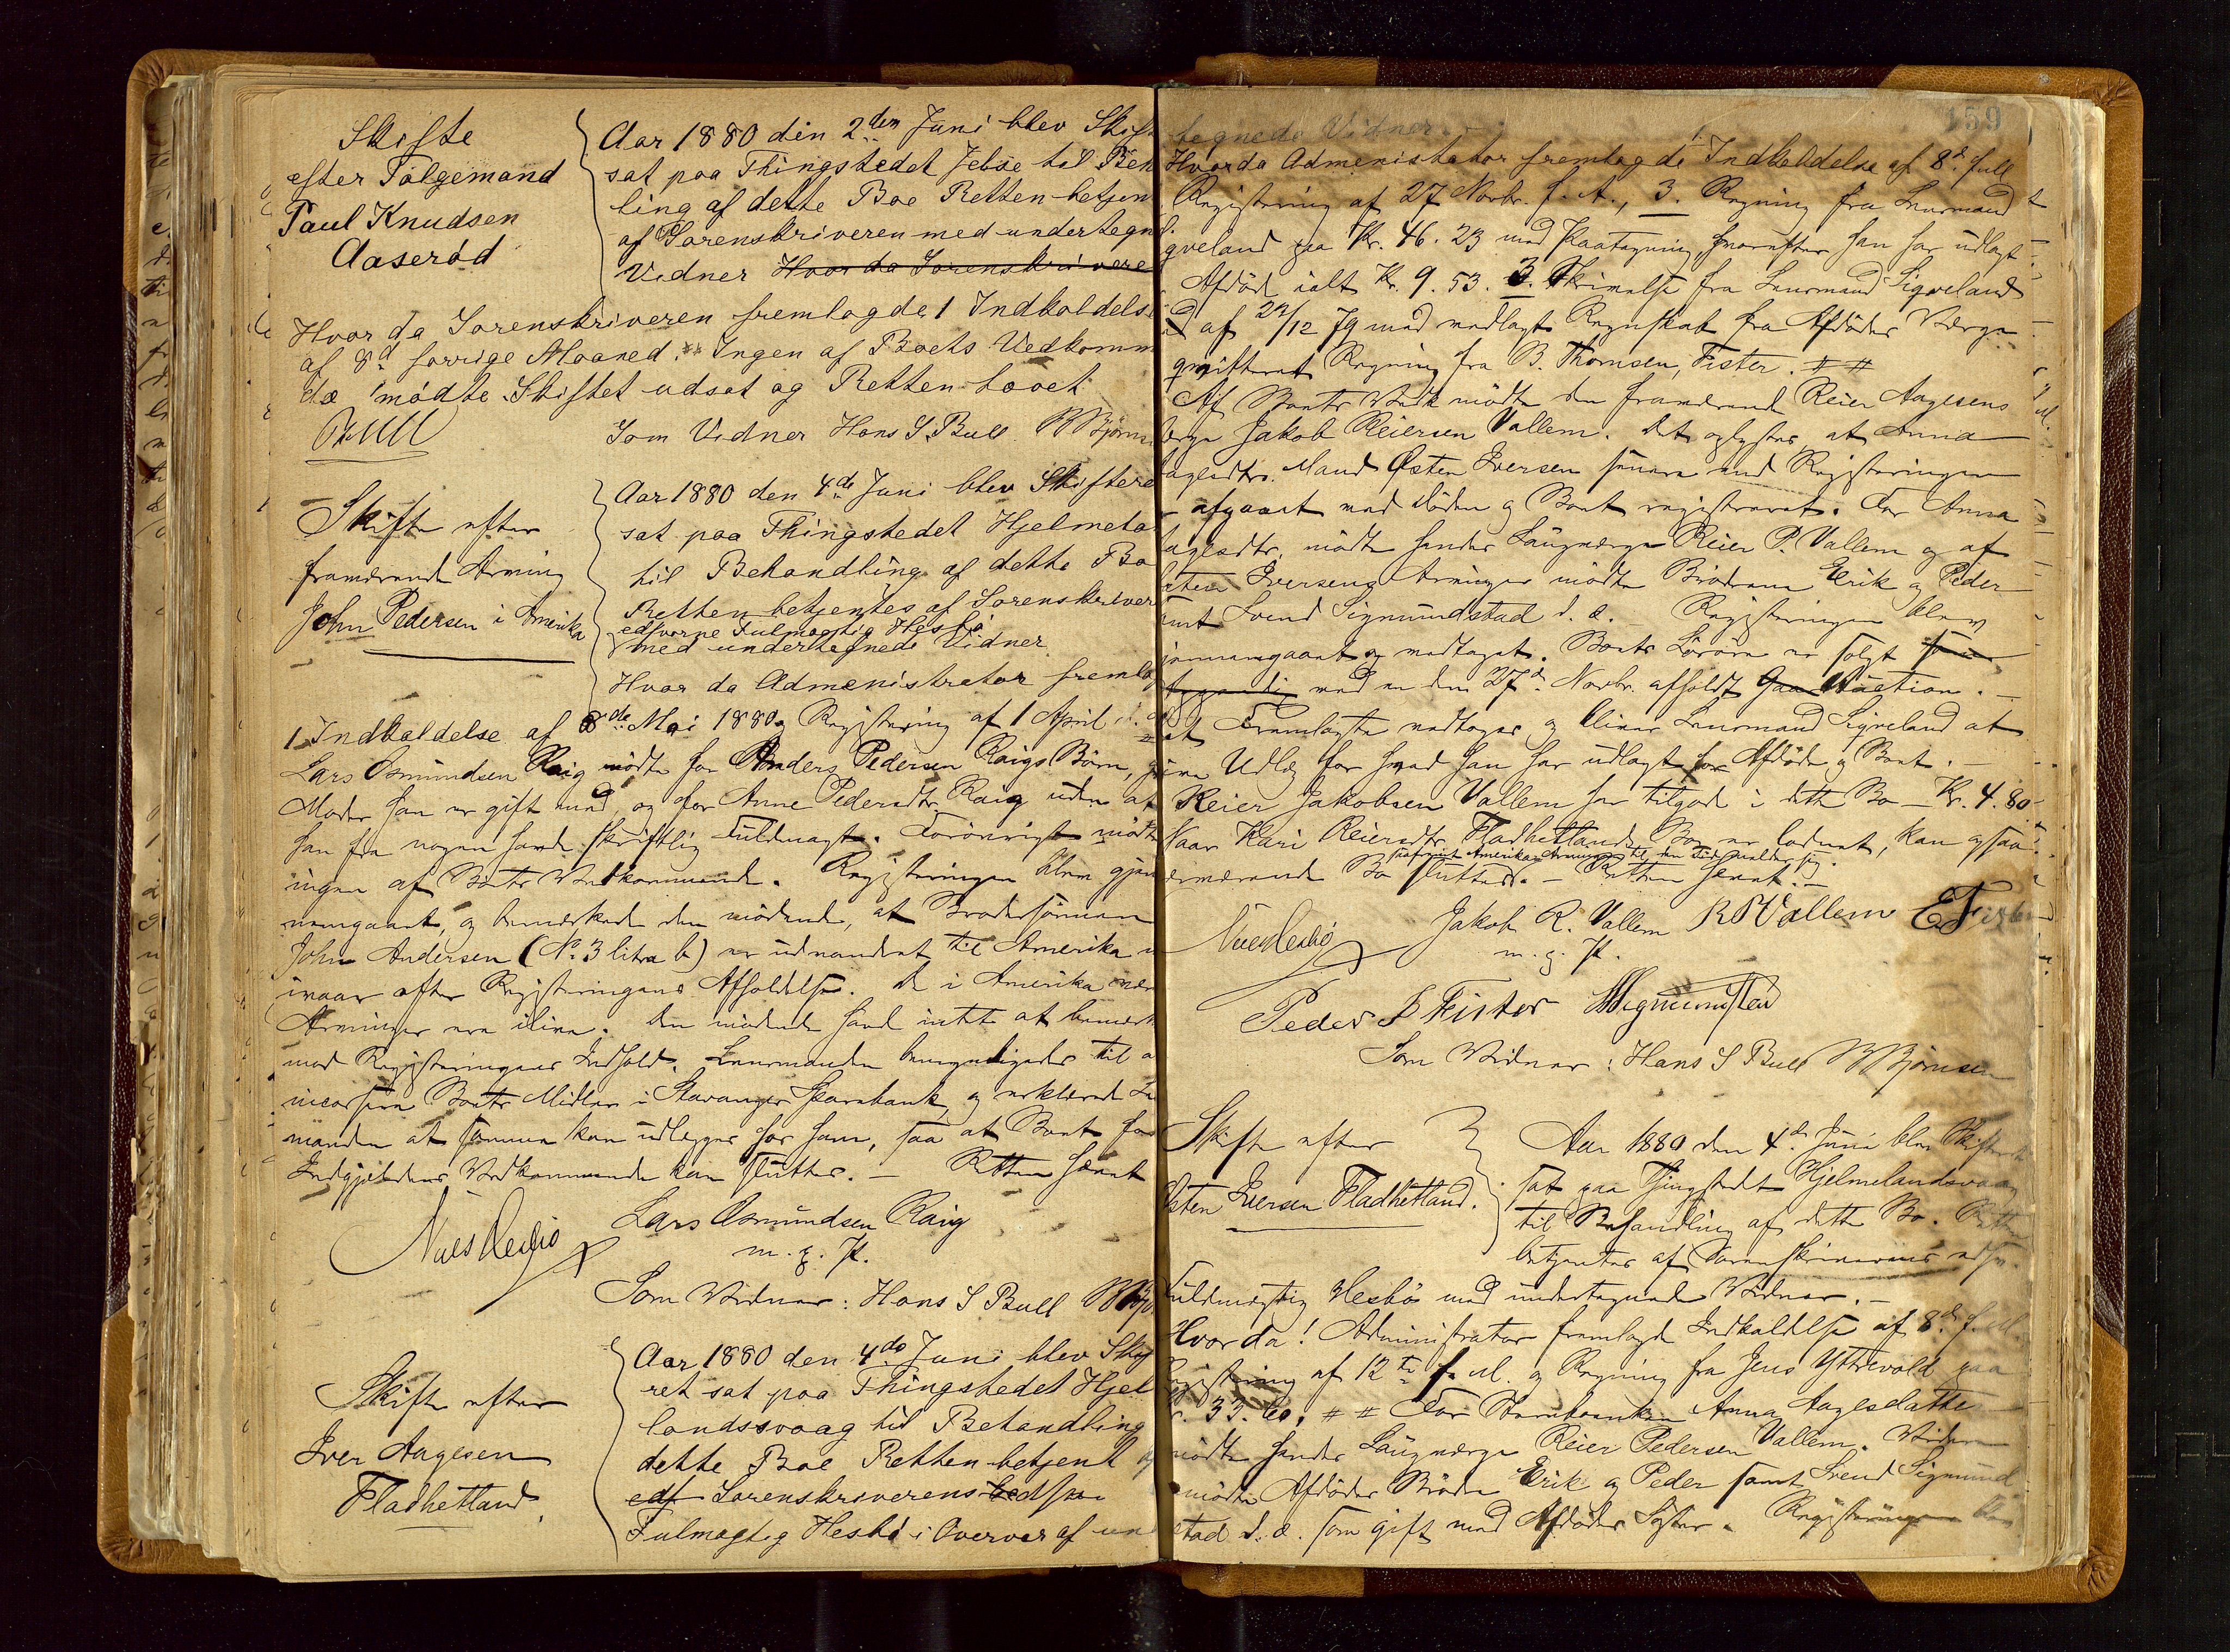 Skifte
efter Følgemand
Paul Knudsen
Aaserød
Aar 1880 den 2den Juni blev Skift
sat paa Thingstedet Jelsøe til Beh
ling af dette Boe Retten betjen
af Sorenskriveren med undertegn
Vidner Hvor da Sorenskrivere
Hvor da Sorenskriveren fremlagde 1 Indkaldels
af 8d forrige Maaned. Ingen af Boets Vedkomm
de mødte. Skiftet udsat og Retten hævet
Som Vidner Hans S. Bull B Bjørns
Skifte efter
fraværende Arving
John Pedersen i Amerika
Aar 1880 den 4de Juni blev Skiftere
sat paa Thingstedet Hjelmela
til Behandling af dette Bo
Retten betjentes af Sorenskriver
edsvorne Fulmægtig Hesbø
med undertegnede Vidner
Hvor da Admenistrator fremla
1 Indkaldelse af 8de Mai 1880 og Registering af 1 April d. A
Lars Osmundsen Raig mødte for Anders Pedersen Raigs Børn, h
Moder han er gift med, og for Anne Pedersdtr Raig uden at
han fra nogen havde skriftlig Fuldmagt. Forøvrigt mødte
ingen af Boets Vedkommende. Registeringen blev gjen
nemgaaet, og bemærkede den mødende, at Brodersønnen
John Andersen (No 3 litra b) er udvandret til Amerika
ivaar efter Registeringens Afholdelse. De i Amerika vær
Arvinger ere ilive. Den mødende havde intet at bemærk
mod Registeringens Indhold. Lensmanden bemyndigedes til
indsætte Boets Midler i Stavanger Sparebank, og erklærede Le
manden at Summen kan udlægges for ham, saa at Boet for
Indgjældens Vedkommende kan sluttes. — Retten hævet
Nils Hesbø
Lars Osmundsen Raig
m. p. P.
Som Vidner: Hans S Bull B Bjø
Skifte efter
Iver Aagesen
Fladhetland.
Aar 1880 den 4de Juni blev Skif
ret sat paa Thingstedet Hjel
landsvaag til Behandling
dette Boe Retten betjent
edf Sorenskriverens edsvo
Fulmægtig Hesbø i Overvær af un
159
tegnede Vidner.
Hvor da Admenistrator fremlagde 1 Indkaldelse af 8d full
Registering af 27 Novbr. f. A., 3. Regning fra Lensmand
gveland paa Kr. 46.23 med Paategning hvorefter han har udlagt
Afdøde ialt Kr. 9.53. 3. Skrivelse fra Lensmand Sigveland
af 22/12 79 med vedlagt Regnskab fra Afdødes Værge
qvitteret Regning fra B. Thomsen, Fister. # #
Af Boets Vedk mødte den fraværende Reier Aagesens
ærge Jakob Reiersen Vallem. Det oplystes at Anna
agesdtrs. Mand Østen Iversen senere end Registeringen
afgaaet ved Døden og Boet registreret. For Anna
agesdtr. mødte hendes Laugværge Reier P. Vallem og af
sten Iversens Arvinger mødte Brødrene Erik og Peder
samt Svend Sigmundstad d. æ. — Registeringen blev
jennemgaaet og vedtaget. Boets Løsøre er solgt
ved en den 27d. Novbr. afholdt Auction. —
at Fremlagte vedtoges og bliver Lensmand Sigveland at
give Udlæg for hvad han har udlagt for Afdøde og Boet. —
Reier Jakobsen Vallem har tilgode i dette Bo — Kr. 4.80.
Naar Kari Reiersdtr. Fladhetlands Bo er ladnet, kan ogsaa
nærværende Bo sluttes. — Retten hævet. —
Nils Hesbø
Jakob R. Vallem R P Vallem E Fister
m. p. P.
Peder I Fister S Sigmunstad
Som Vidner: Hans S Bull B Bjørnsen
Skifte efter
Østen Iversen Fladhetland.
Aar 1880 den 4de Juni blev Skifteret
sat paa Thingstedet Hjelmelandsvaag
til Behandling af dette Bo. Retten
betjentes af Sorenskriverens edsv.
Fuldmægtig Hesbø med undertegnede Vidner. —
Hvor da! Administrator fremlagde Indkaldelse af 8de f. M.
Registering af 12te f. M. og Regning fra Jens Ytrevold paa
Kr. 33.60. # # For Sterboenken Anna Aagesdatter
mødte hendes Laugværge Reier Pedersen Vallem. Videre
mødte Afdødes Brødre Erik og Peder samt Svend Sigmund
stad d. æ. som gift med Afdødes Søster. Registeringen blev